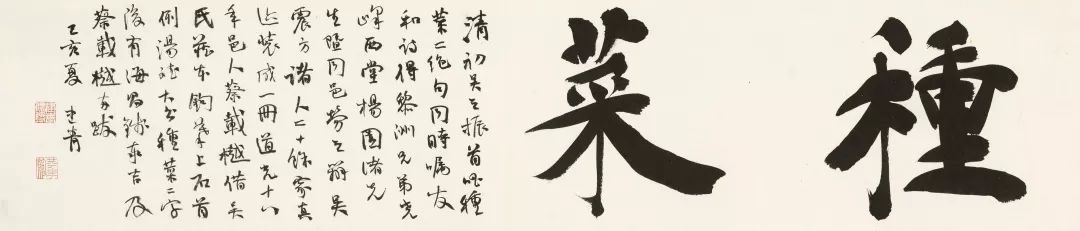 種菜
清初吴之振首唱種
菜二绝句同時嘱友
和詩得黎洲兄弟尧
峰西堂楊園諸先
生暨同邑劳之辨吴
震方諸人二十餘家真
迹装成一冊道光十八
年邑人蔡載樾借吴
氏藏本鉤摹上石首
湯大書種菜二字
後有海昌錢泰吉及
蔡載樾跋
乙亥夏